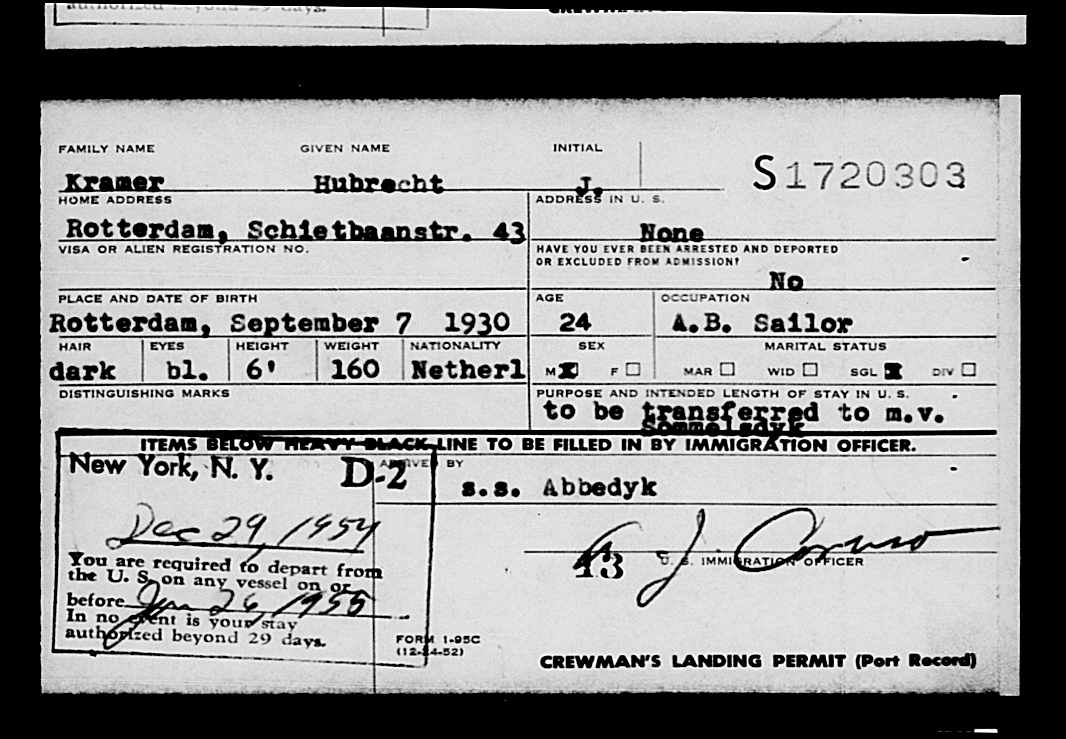 authorized beyond 29 days.
FAMILY NAME GIVEN NAME INITIAL
Kramer Hubrecht J. S1720303
HOME ADDRESS ADDRESS IN U. S.
Rotterdam, Schietbaanstr. 43 None
VISA OR ALIEN REGISTRATION NO. HAVE YOU EVER BEEN ARRESTED AND DEPORTED
OR EXCLUDED FROM ADMISSION?
No
PLACE AND DATE OF BIRTH AGE OCCUPATION
Rotterdam, September 7 1930 24 A.B. Sailor
HAIR EYES HEIGHT WEIGHT NATIONALITY SEX MARITAL STATUS
dark bl. 6' 160 Netherl M X F MAR WID SGL X DIV
DISTINGUISHING MARKS PURPOSE AND INTENDED LENGTH OF STAY IN U. S.
to be transferred to m.v.
Sommelsdyk
ITEMS BELOW HEAVY BLACK LINE TO BE FILLED IN BY IMMIGRATION OFFICER.
New York, N. Y. D-2 ARRIVED BY
s.s. Abbedyk
Dec 29, 1954
You are required to depart from
the U. S. on any vessel on or
before Jan 26, 1955
In no event is your stay
authorized beyond 29 days.
J. Caruso
43 U. S. IMMIGRATION OFFICER
FORM I-95C
(12-24-52)
CREWMAN'S LANDING PERMIT (Port Record)